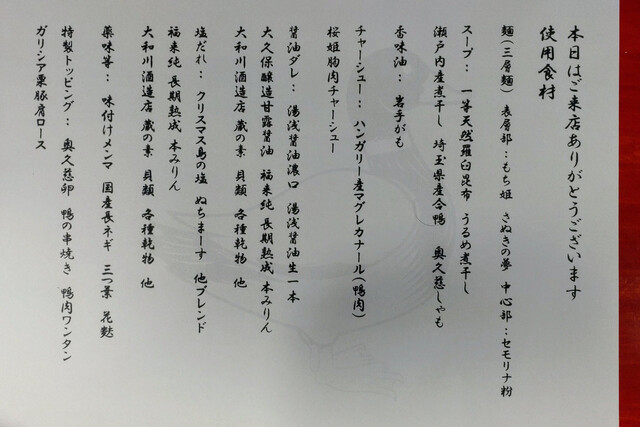 本日はご来店ありがとうございます
使用食材
麺(三層麺) 表層部:もち姫 さぬきの夢 中心部:セモリナ粉
スープ: 一等天然羅臼昆布 うるめ煮干し
瀬戸内産煮干し 埼玉県産合鴨 奥久慈しゃも
香味油: 岩手がも
チャーシュー: ハンガリー産マグレカナール(鴨肉)
桜姫胸肉チャーシュー
醤油ダレ: 湯浅醤油濃口 湯浅醤油生一本
大久保醸造甘露醤油 福来純 長期熟成 本みりん
大和川酒造店 蔵の素 貝類 各種乾物 他
塩だれ: クリスマス島の塩 ぬちまーす 他ブレンド
福来純 長期熟成 本みりん
大和川酒造店 蔵の素 貝類 各種乾物 他
薬味等: 味付けメンマ 国産長ネギ 三つ葉 花麩
特製トッピング: 奥久慈卵 鴨の串焼き 鴨肉ワンタン
ガリシア栗豚肩ロース